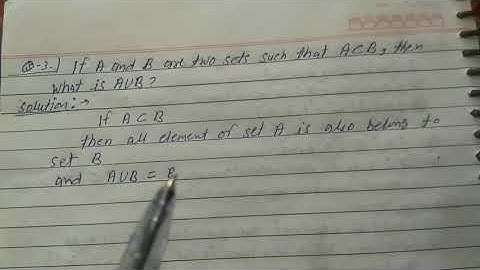 Q-3. If A and B are two sets such that A⊂B, then
what is A∪B?
Solution:→
If A⊂B
then all element of set A is also belong to
set B
and A∪B = B